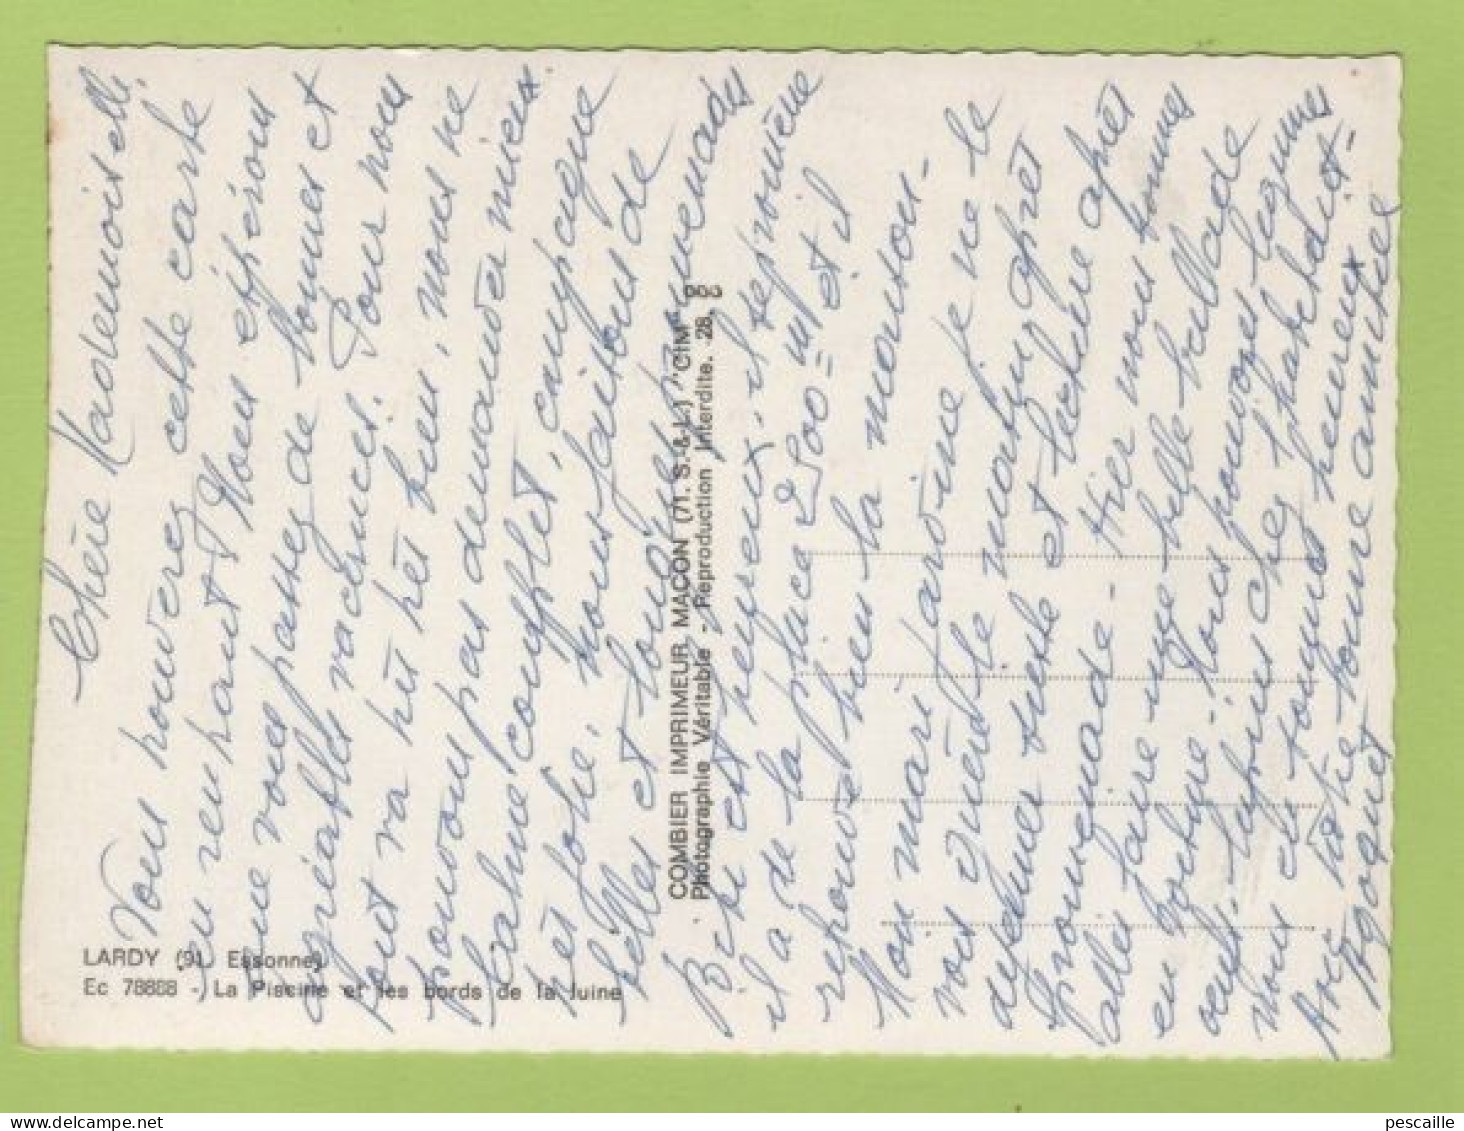 Chère Mademoiselle.
Vous trouverez cette carte
en rentrant Nous espérons
que vous passez de bonnes et
agréables vacances. Pour nous
tout va très très bien, nous ne
pouvons pas demander mieux
calme complet, campagne
très jolie. nous faisons de
belles et longues promenades
Bébé est heureux. il se promène
il a de la place 2500 = m et il
retrouve bien la maison -
Mon mari jardine je ne le
vois qu'entre le matin après
déjeuner sieste et lecture après
promenade - Hier nous sommes
allés faire une belle ballade
en voiture - Nous pouvons
oeufs. lapins chez l'habitant -
nous sommes heureux
Avec notre bonne amitié
LARDY (91. Essonne)
Ec 78888 - La Piscine et les bords de la Juine
COMBIER IMPRIMEUR MACON (71. S.-&-L.) "CIM"
Photographie Véritable - Reproduction Interdite. 28.